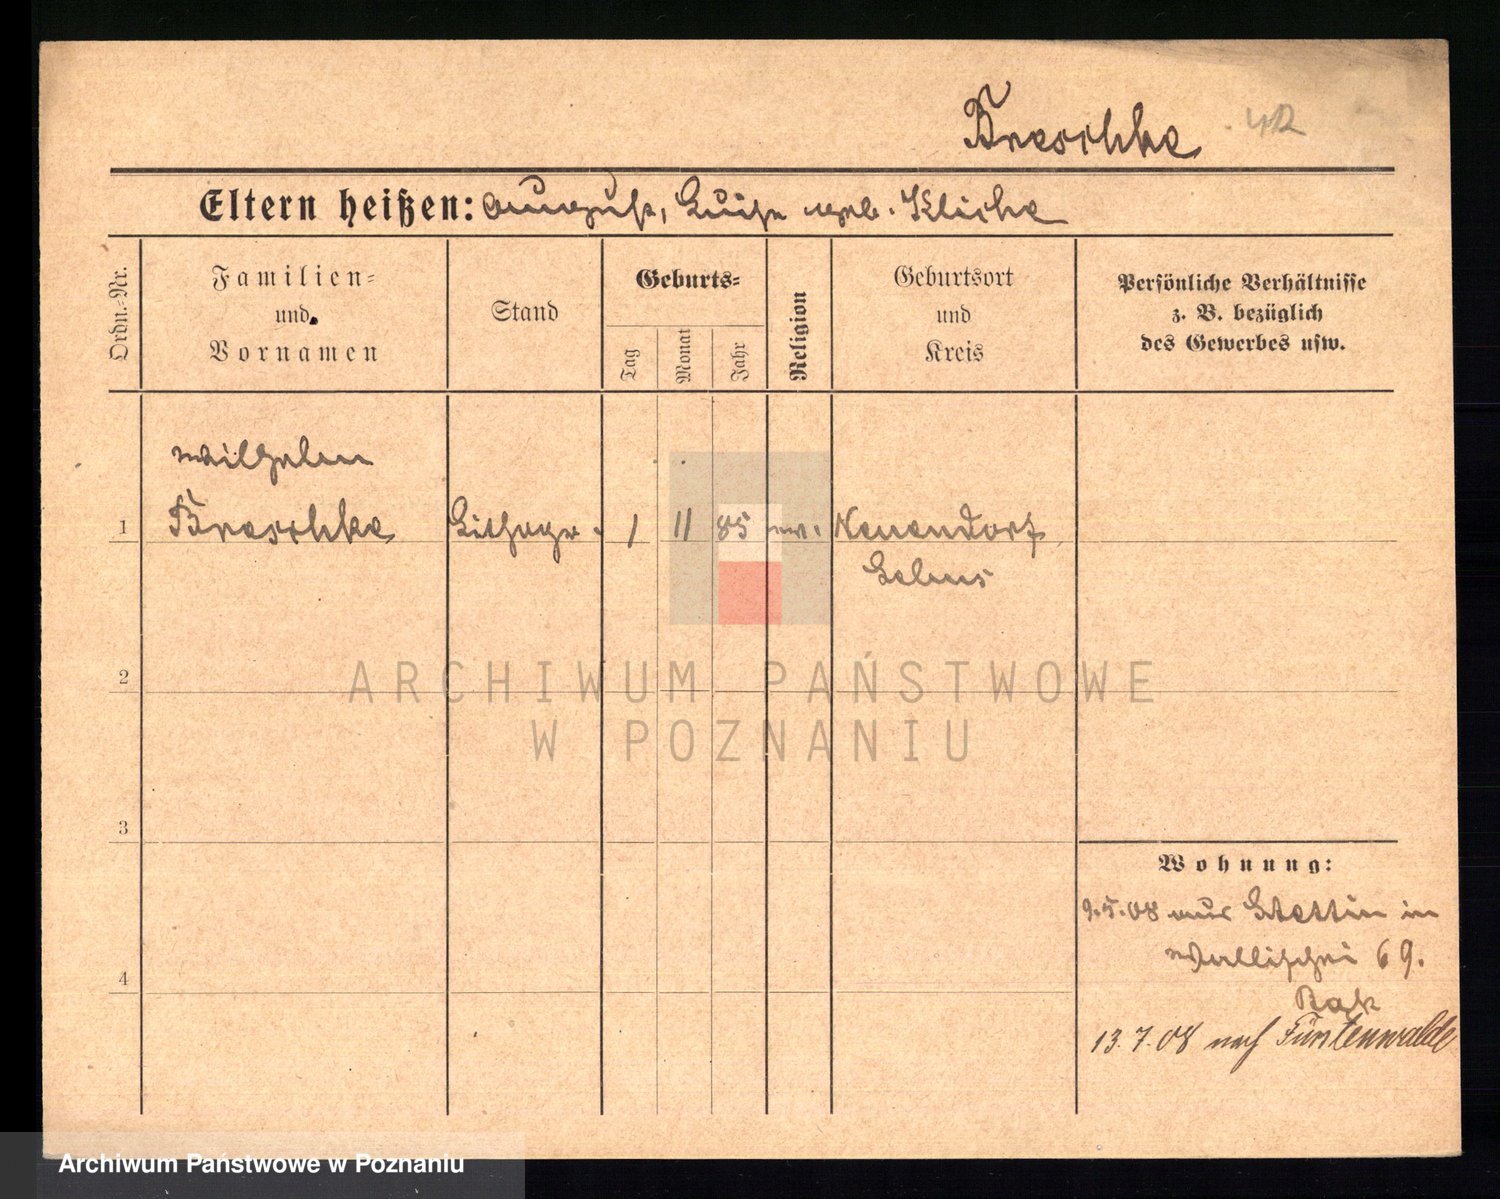 Breschke
Eltern heißen: August, Luise geb. Klicke
Ordn.-Nr.
Familien-
und
Vornamen
Stand
Geburts-
Tag
Monat
Jahr
Religion
Geburtsort
und
Kreis
Persönliche Verhältnisse
z. B. bezüglich
des Gewerbes usw.
Wilhelm
1 Breschke Lithogr. 1 11 85 ev. Neuendorf
Lebus
2
ARCHIWUM PAŃSTWOWE
W POZNANIU
3
Wohnung:
9.5.08 aus Stettin in
Wallischei 69.
4
13.7.08 nach Fürstenwalde
Archiwum Państwowe w Poznaniu